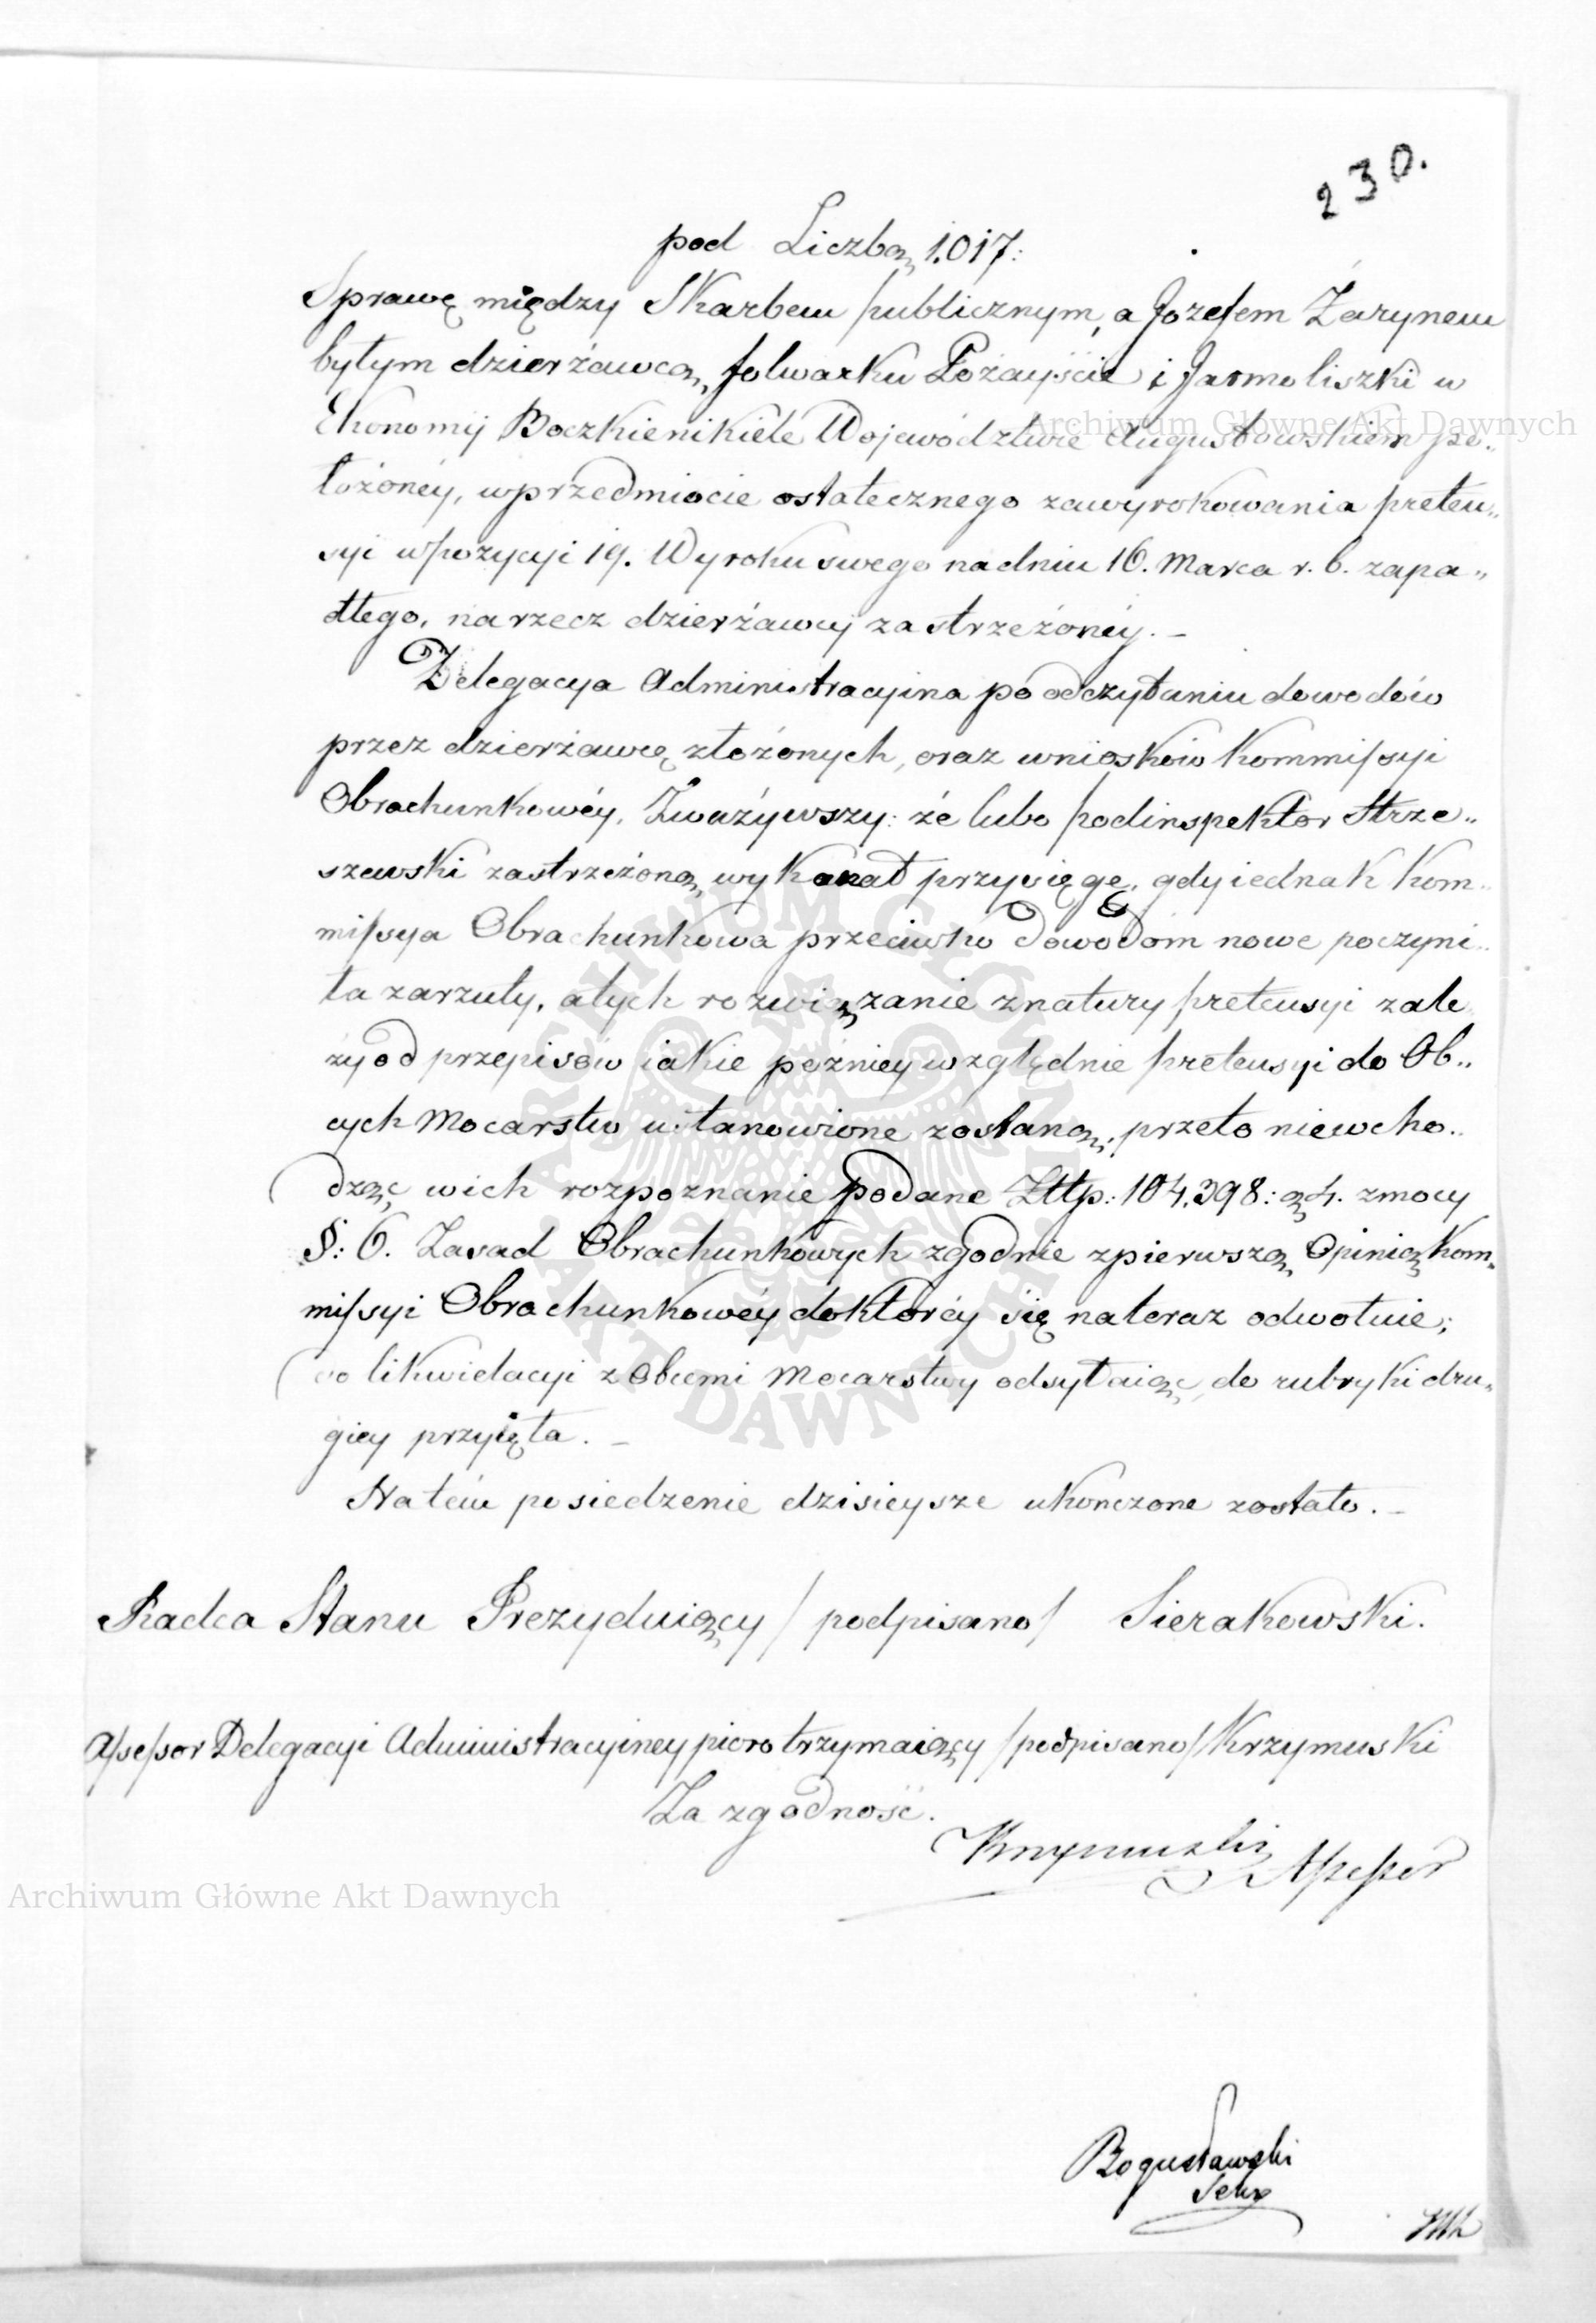 230.
pod Liczbą 1.017:
Sprawę między Skarbem publicznym, a Jozefem Żarynem
byłym dzierżawcą folwarku Pożayście i Jarmoliszki w
Ekonomij Boczkienikiele Wojewódzłwie Augustowskiem po„
łożoney, wprzedmiocie ostatecznego zawyrokowania preten„
syi wpozycyi 19. Wyroku swego nadniu 16. Marca r. b. zapa„
dłego, narzecz dzierżawcy zastrzeżoney. –
Delegacya Administracyina po odczytaniu dowodów
przez dzierżawcę złożonych, oraz wnioskòw Kommissyi
Obrachunkowéy, Zważywszy: że lubo podinspektor Strze„
szewski zastrzeżoną wykonał przysięgę, gdyiednak Kom„
missya Obrachunkowa przeciwko dowodom nowe poczyni„
ła zarzuty, atych rozwiązanie znatury pretensyi zale
ży od przepisów iakie pożniey względnie pretensyi do Ob„
cych Mocarstw ustanowione zostaną, przeto niewcho„
dząc wich rozpoznanie podane Złtp: 104,398: gr 4. zmocy
§: 6. Zasad Obrachunkowych zgodnie zpierwszą Opinią Kom„
missyi Obrachunkowéy doktoréy się nateraz odwołuie;
do likwidacyi z Obcemi Mocarstwy odsyłaiąc, do rubryki dru„
giey przyięta. –
Natém posiedzenie dzisieysze ukonczone zostało. –
Radca Stanu Prezyduiący /podpisano/ Sierakowski.
Assessor Delegacyi Administracyiney pioro trzymaiący /podpisano/ Krzymuski
Za zgodność.
Krzymuski Assessor
Bogusławski
Sekr
Archiwum Główne Akt Dawnych
Archiwum Główne Akt Dawnych
ARCHIWUM GŁÓWNE AKT DAWNYCH